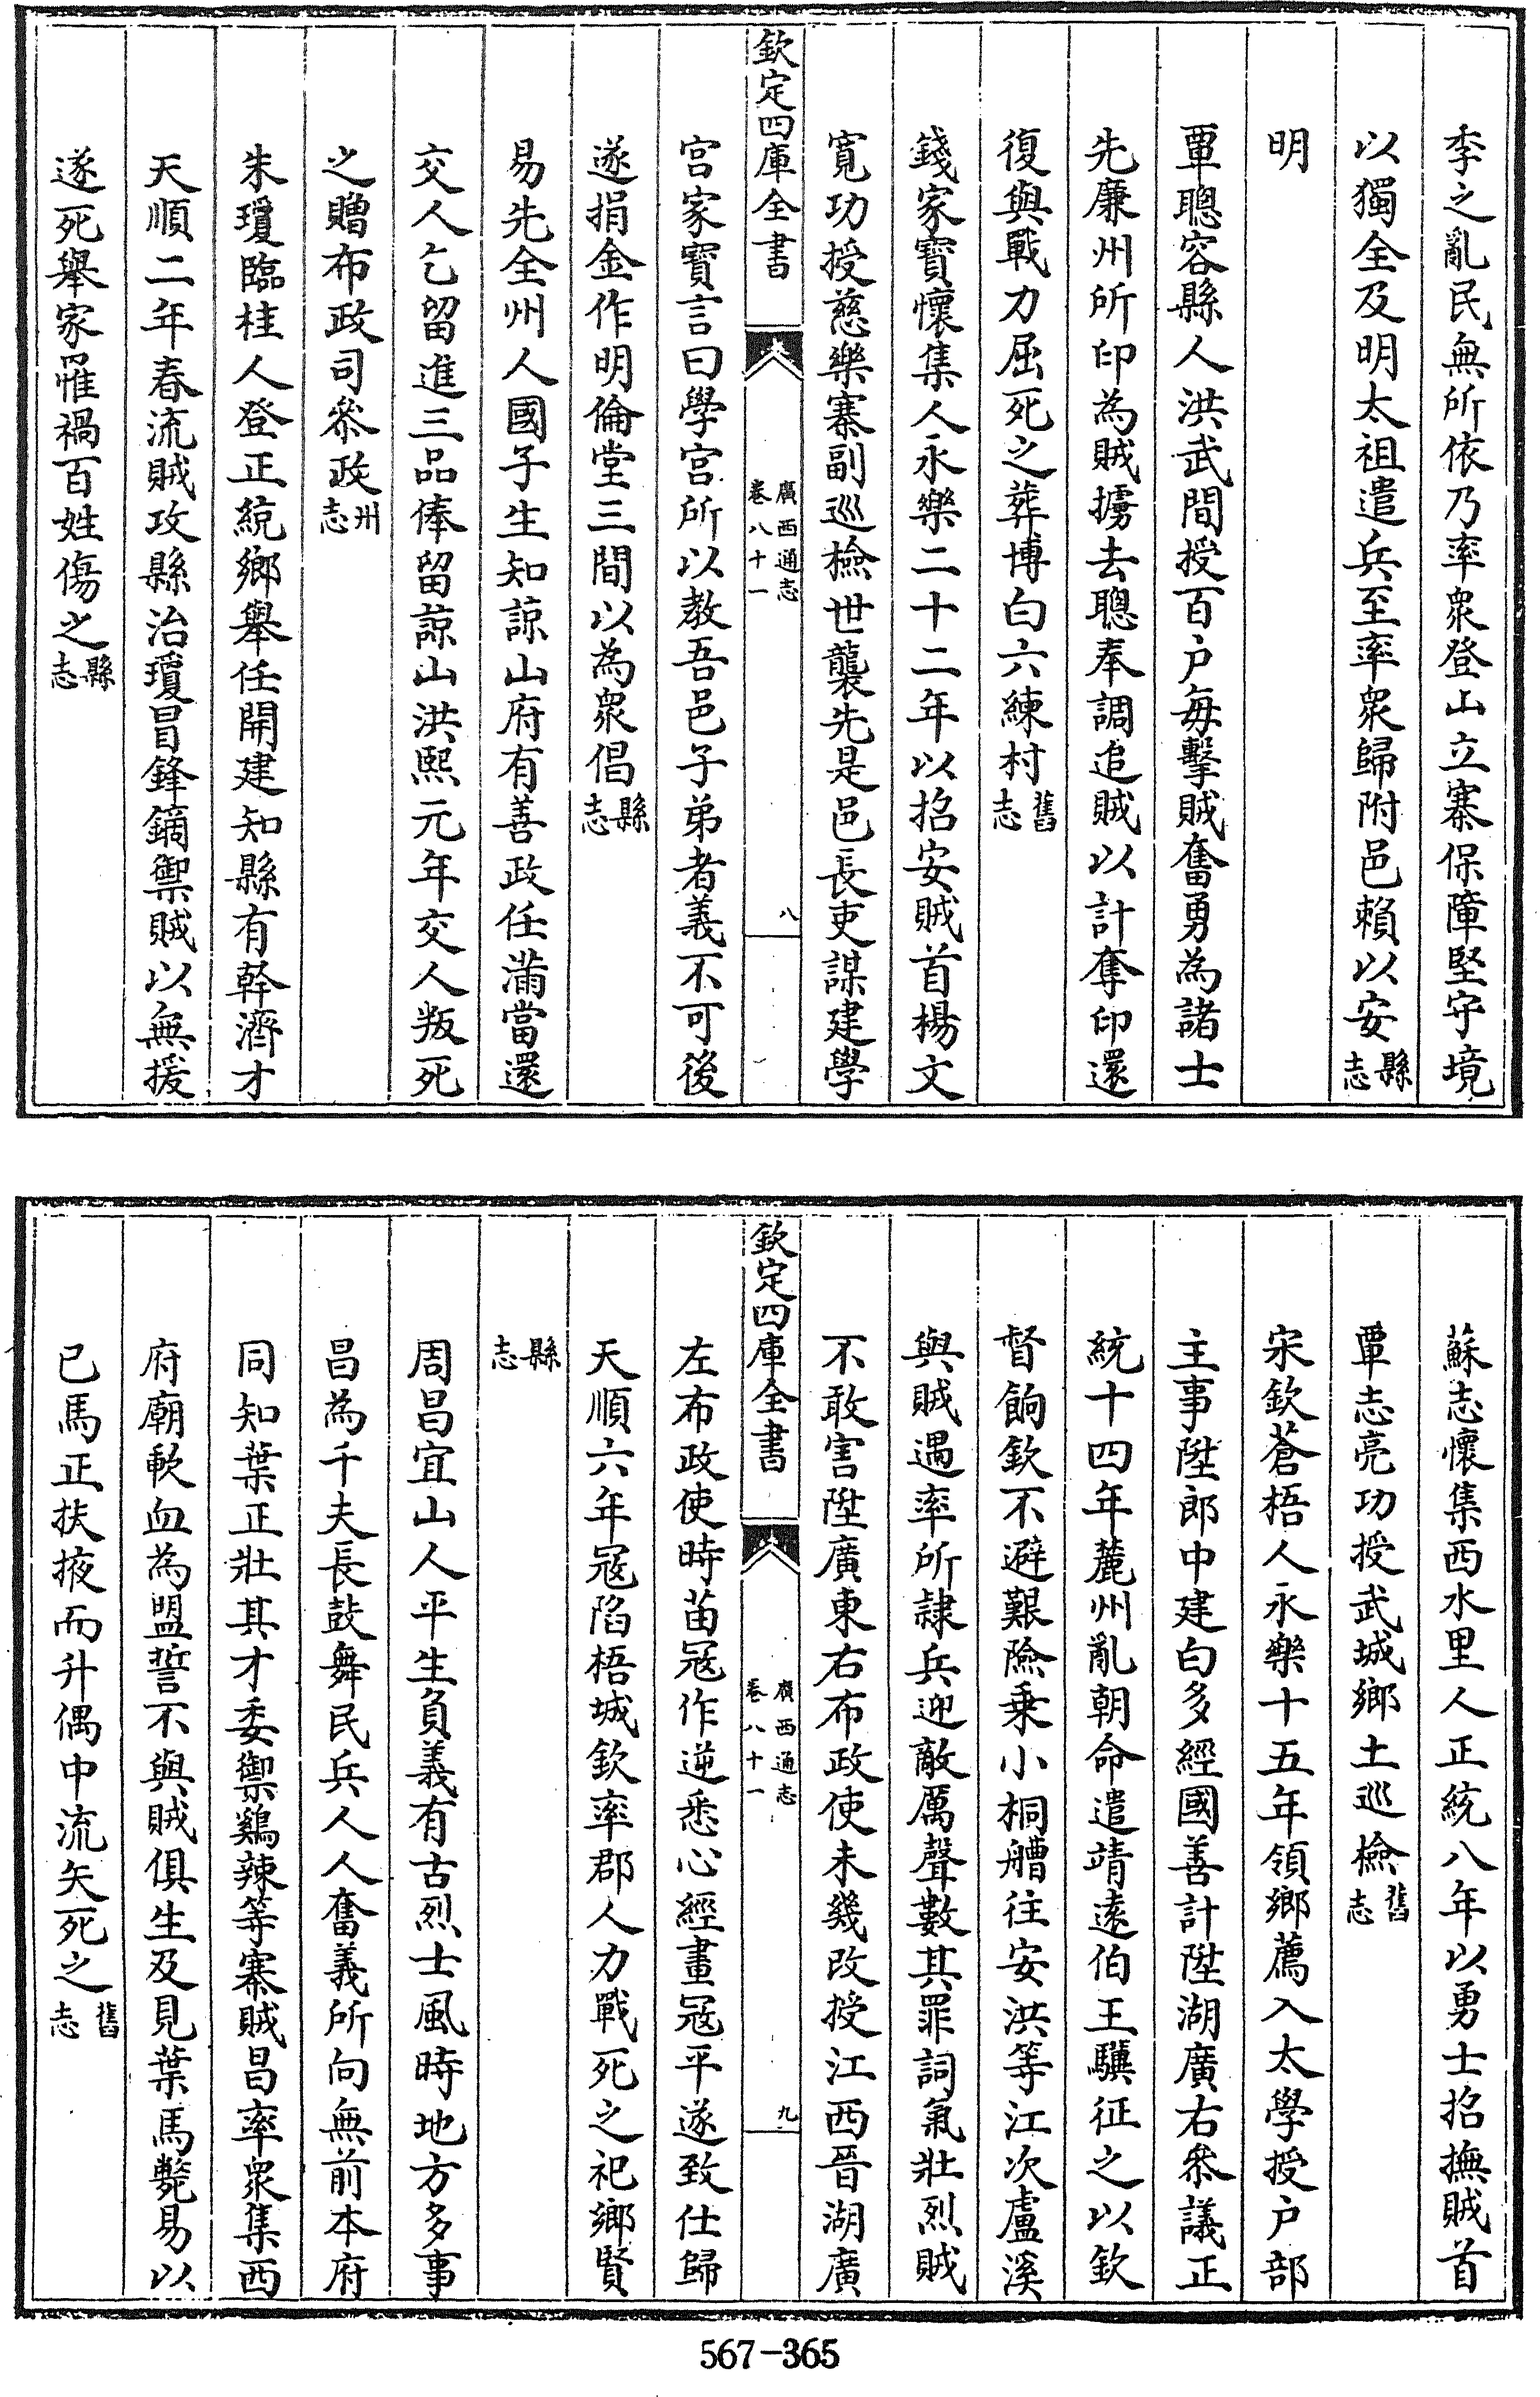 李之亂民無所依乃率衆登山立寨保障堅守境
以獨全及明太祖遣兵至率衆歸附邑賴以安縣志
明
覃聰容縣人洪武間授百户每擊賊奮勇為諸士
先廉州所印為賊擄去聰奉調追賊以計奪印還
復與戰力屈死之葬博白六練村舊志
錢家寶懷集人永樂二十二年以招安賊首楊文
寛功授慈樂寨副巡檢世襲先是邑長吏謀建學
欽定四庫全書
廣西通志
卷八十一
八
宫家寶言曰學宫所以教吾邑子弟者義不可後
遂捐金作明倫堂三間以為衆倡縣志
易先全州人國子生知諒山府有善政任滿當還
交人乞留進三品俸留諒山洪熙元年交人叛死
之贈布政司參政州志
朱瓊臨桂人登正統鄉舉任開建知縣有幹濟才
天順二年春流賊攻縣治瓊冒鋒鏑禦賊以無援
遂死舉家罹禍百姓傷之縣志
蘇志懷集西水里人正統八年以勇士招撫賊首
覃志亮功授武城鄉土巡檢舊志
宋欽蒼梧人永樂十五年領鄉薦入太學授户部
主事陞郎中建白多經國善計陞湖廣右叅議正
統十四年麓州亂朝命遣靖遠伯王驥征之以欽
督餉欽不避艱險乗小桐艚往安洪等江次盧溪
與賊遇率所隷兵迎敵厲聲數其罪詞氣壯烈賊
不敢害陞廣東右布政使未幾改授江西晉湖廣
欽定四庫全書
廣西通志
卷八十一
九
左布政使時苗冦作逆悉心經畫冦平遂致仕歸
天順六年冦陷梧城欽率郡人力戰死之祀鄉賢
縣志
周昌宜山人平生負義有古烈士風時地方多事
昌為千夫長鼓舞民兵人人奮義所向無前本府
同知葉正壯其才委禦鷄辣等寨賊昌率衆集西
府廟歃血為盟誓不與賊俱生及見葉馬斃易以
已馬正扶掖而升偶中流矢死之舊志
567-365